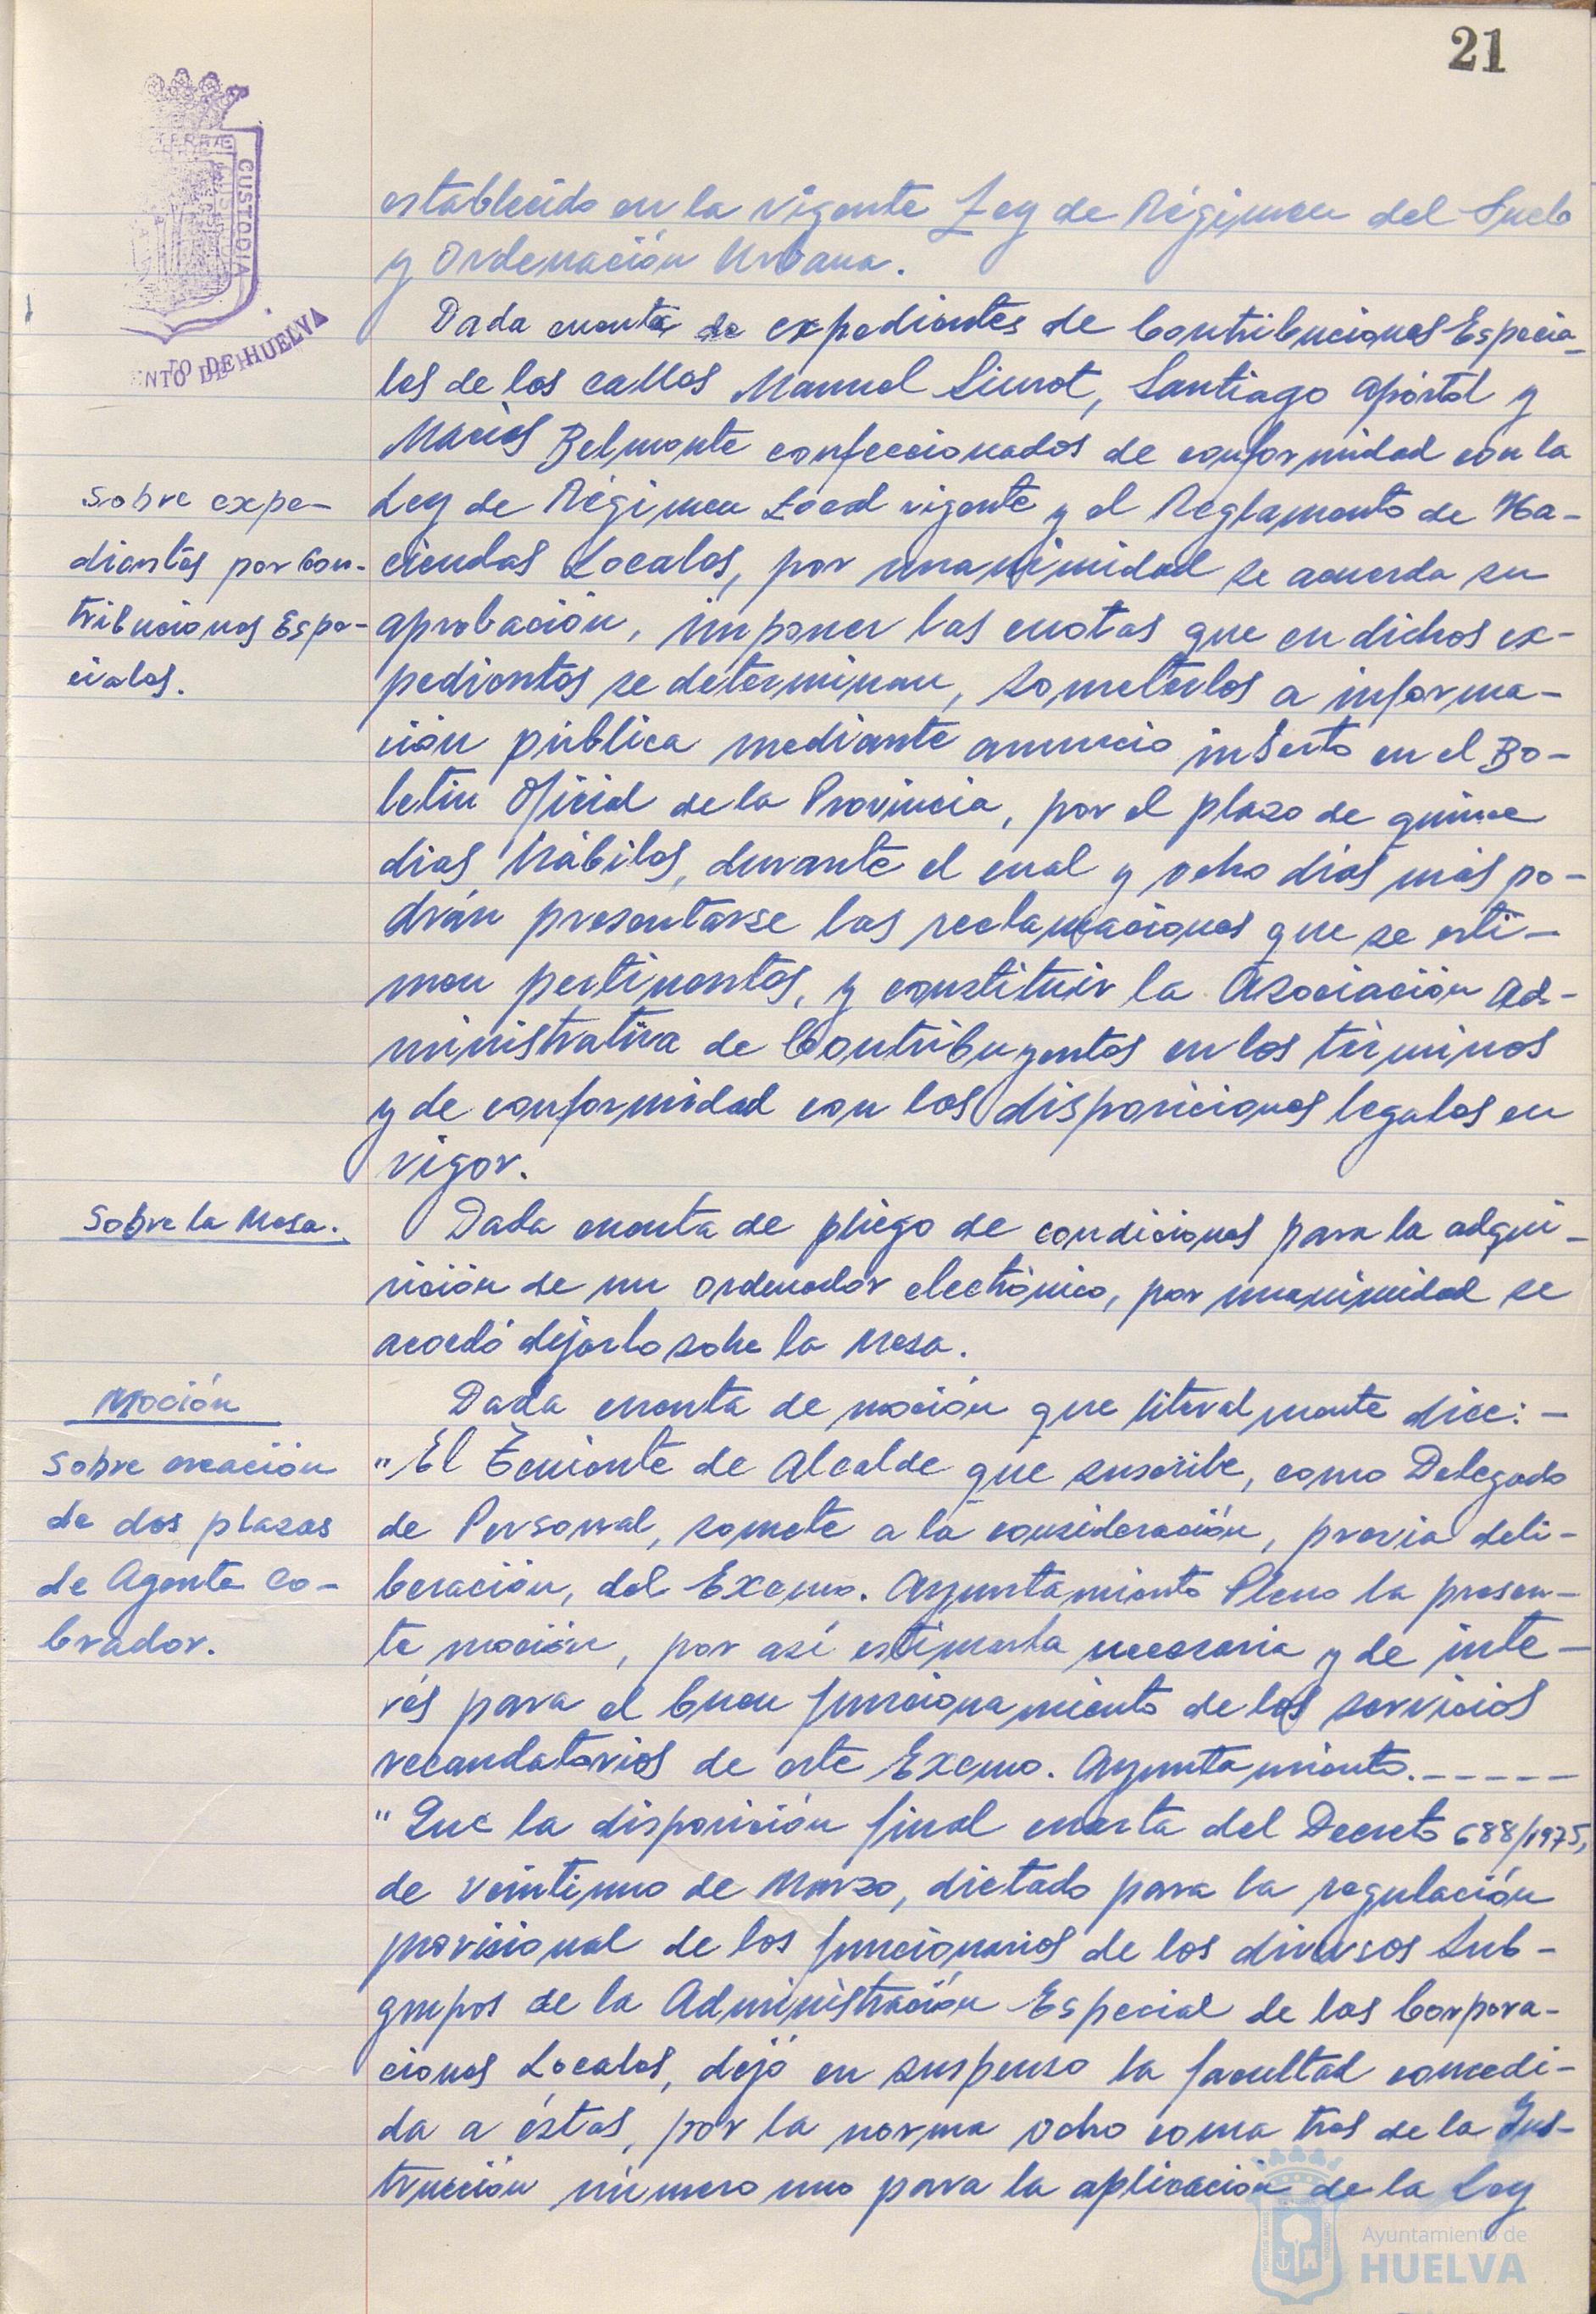 21
CUSTODIA
NTO DE HUELVA
establecido en la vigente Ley de Régimen del Suelo
y Ordenación Urbana.
Dada cuenta de expedientes de Contribuciones Especia-
les de las calles Manuel Siurot, Santiago Apóstol y
Macías Belmonte confeccionados de conformidad con la
Sobre expe-
dientes por Con-
tribuciones Espe-
ciales.
Ley de Régimen Local vigente y el Reglamento de Ha-
ciendas Locales, por unanimidad se acuerda su
aprobación, imponer las cuotas que en dichos ex-
pedientes se determinan, someterlos a informa-
ción pública mediante anuncio inserto en el Bo-
letin Oficial de la Provincia, por el plazo de quince
dias hábiles, durante el cual y ocho dias más po-
drán presentarse las reclamaciones que se esti-
men pertinentes, y constituir la Asociación Ad-
ministrativa de Contribuyentes en los términos
y de conformidad con las disposiciones legales en
vigor.
Sobre la Mesa.
Dada cuenta de pliego de condiciones para la adqui-
sición de un ordenador electrónico, por unanimidad se
acordó dejarlo sobre la Mesa.
Moción
Sobre creación
de dos plazas
de Agente Co-
brador.
Dada cuenta de moción que literalmente dice: -
"El Teniente de Alcalde que suscribe, como Delegado
de Personal, somete a la consideración, previa deli-
beración, del Excmo. Ayuntamiento Pleno la presen-
te moción, por así estimarla necesaria y de inte-
rés para el buen funcionamiento de los servicios
recaudatorios de este Excmo. Ayuntamiento.-----
"Que la disposición final cuarta del Decreto 688/1975,
de veintiuno de Marzo, dictado para la regulación
provisional de los funcionarios de los diversos Sub-
grupos de la Administración Especial de las Corpora-
ciones Locales, dejó en suspenso la facultad concedi-
da a éstas, por la norma ocho coma tres de la Ins-
trucción número uno para la aplicación de la Ley
Ayuntamiento de
HUELVA